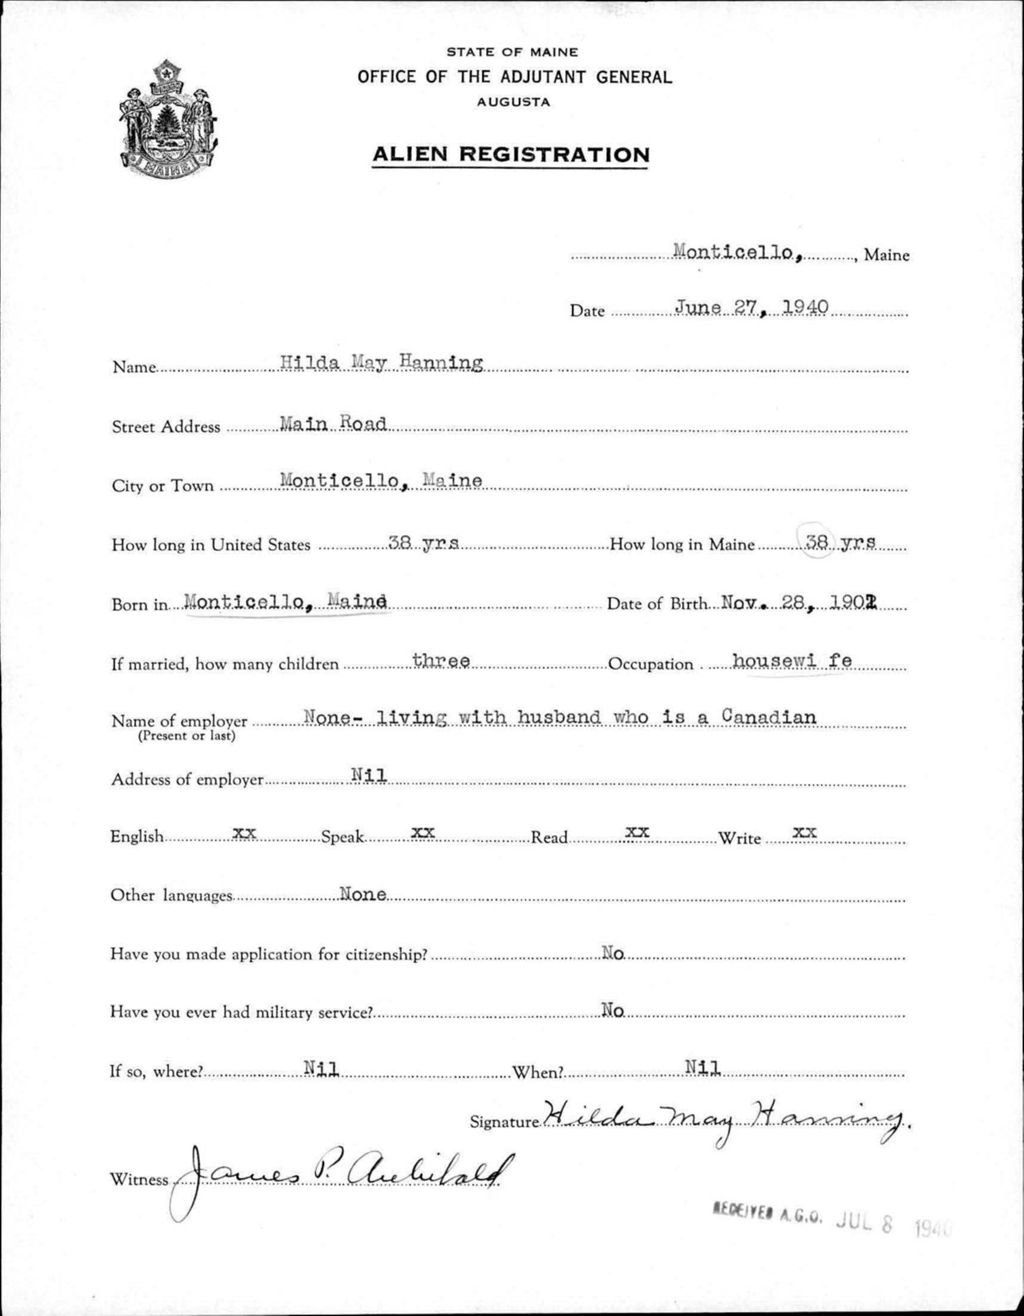 STATE OF MAINE
OFFICE OF THE ADJUTANT GENERAL
AUGUSTA
ALIEN REGISTRATION
MAINE
Monticello, , Maine
Date June 27, 1940
Name Hilda May Hanning
Street Address Main Road
City or Town Monticello, Maine
How long in United States 38 yrs How long in Maine 38 yrs
Born in Monticello, Maine Date of Birth Nov. 28, 1901
If married, how many children three Occupation housewi fe
Name of employer None- living with husband who is a Canadian
(Present or last)
Address of employer Nil
English xx Speak xx Read xx Write xx
Other languages None
Have you made application for citizenship? No
Have you ever had military service? No
If so, where? Nil When? Nil
Signature Hilda May Hanning.
Witness James P. Archibald
RECEIVED A.G.O. JUL 8 1940